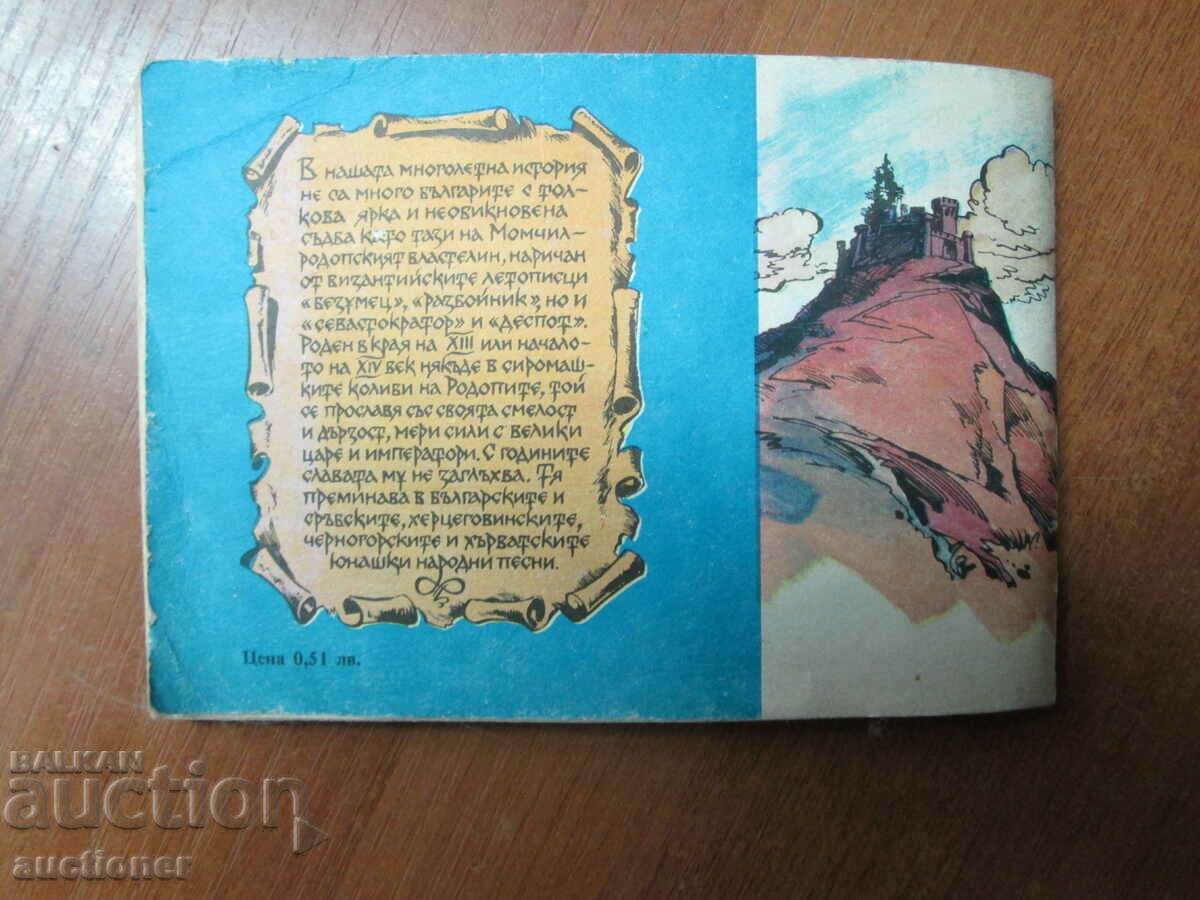 В нашата многолетна история
не са много българите с тол-
кова ярка и необикновена
съдба като тази на Момчил-
родопският властелин, наричан
от византийските летописци
«безумец», «разбойник», но и
«севастократор» и «деспот».
Роден в края на XIII или начало-
то на XIV век някъде в сиромаш-
ките колиби на Родопите, той
се прославя със своята смелост
и дързост, мери сили с велики
царе и императори. С годините
славата му не заглъхва. Тя
преминава в българските и
сръбските, херцеговинските,
черногорските и хърватските
юнашки народни песни.
Цена 0,51 лв.
BALKAN
auction
auctioner